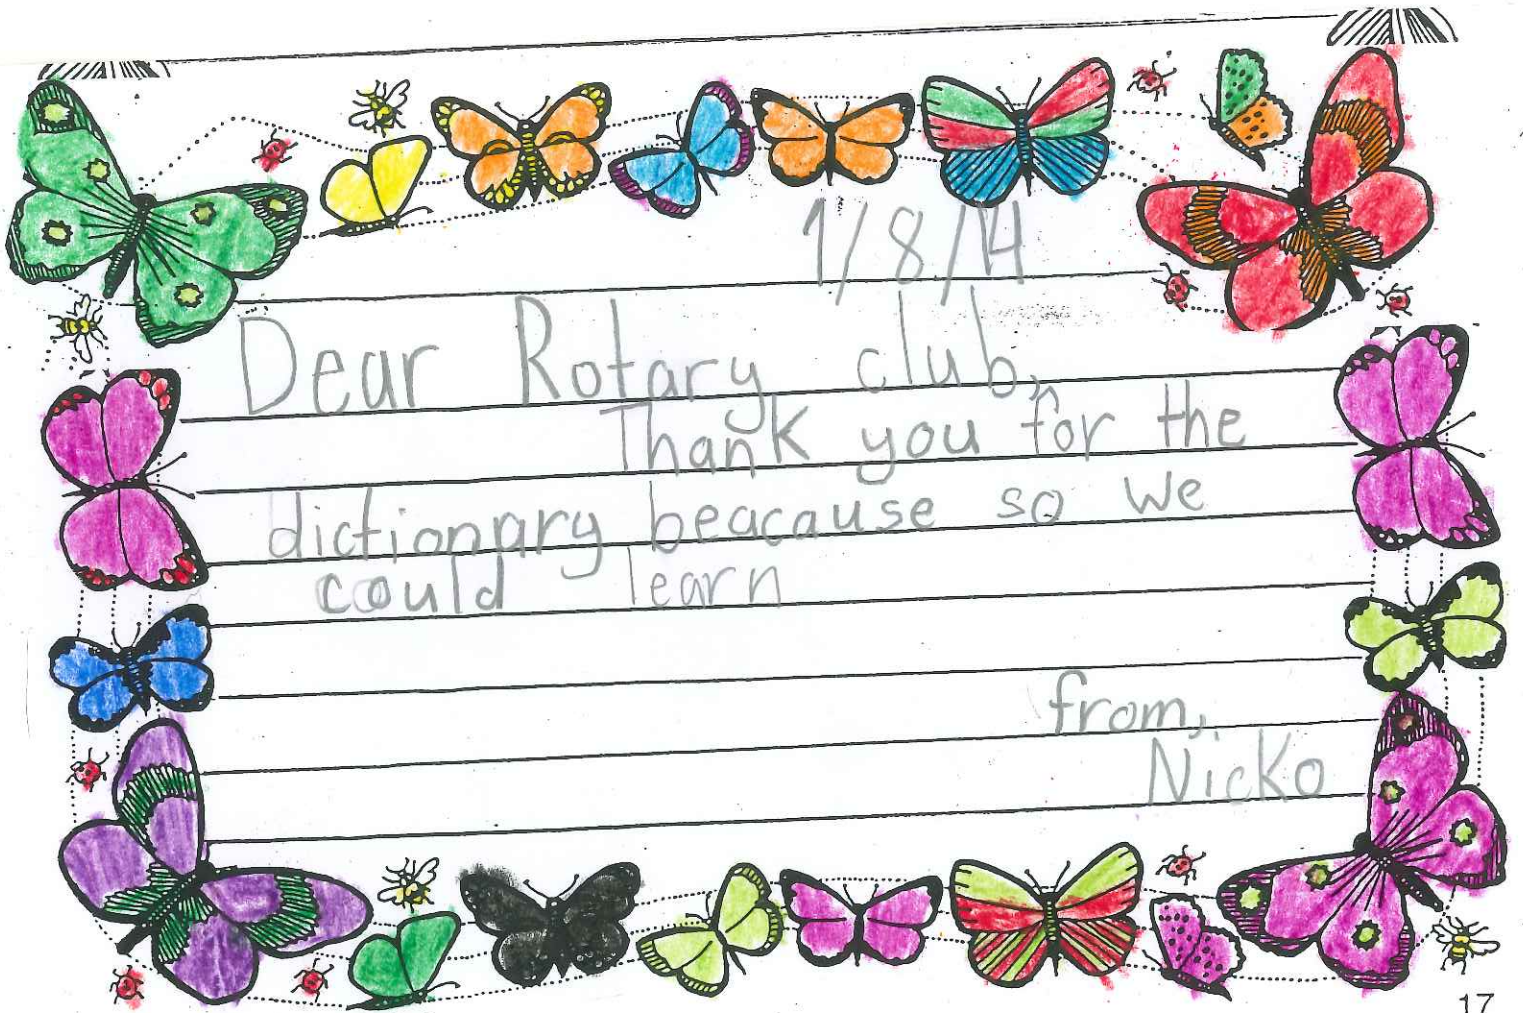 1/8/14
Dear Rotary club,
Thank you for the
dictionary beacause so we
could learn
from,
Nicko
17